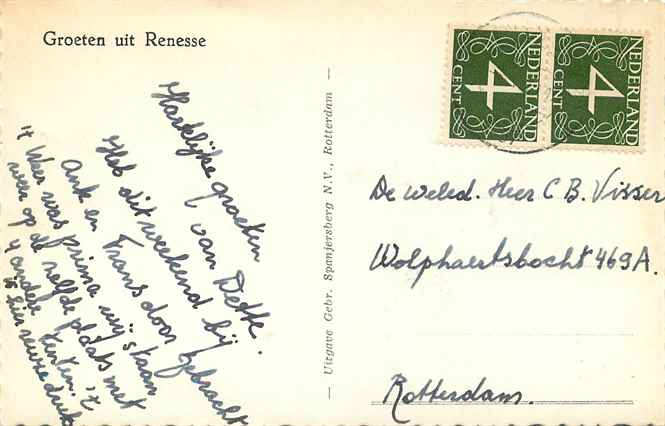 Groeten uit Renesse
Hartelijke groeten
van Dette.
Heb dit weekend bij
Ank en Frans doorgebracht
't Weer was prima wij staan
weer op de zelfde plaats met
4 andere tenten. 't
is hier reuze druk
— Uitgave Gebr. Spanjersberg N.V., Rotterdam —
NEDERLAND
4
CENT
NEDERLAND
4
CENT
De weled. Heer C B. Visser
Wolphaertsbocht 469A.
Rotterdam.